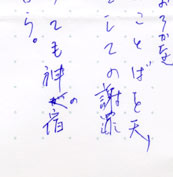 おろかなを
ことばと天
しての謝罪
ても神の宿
ら。